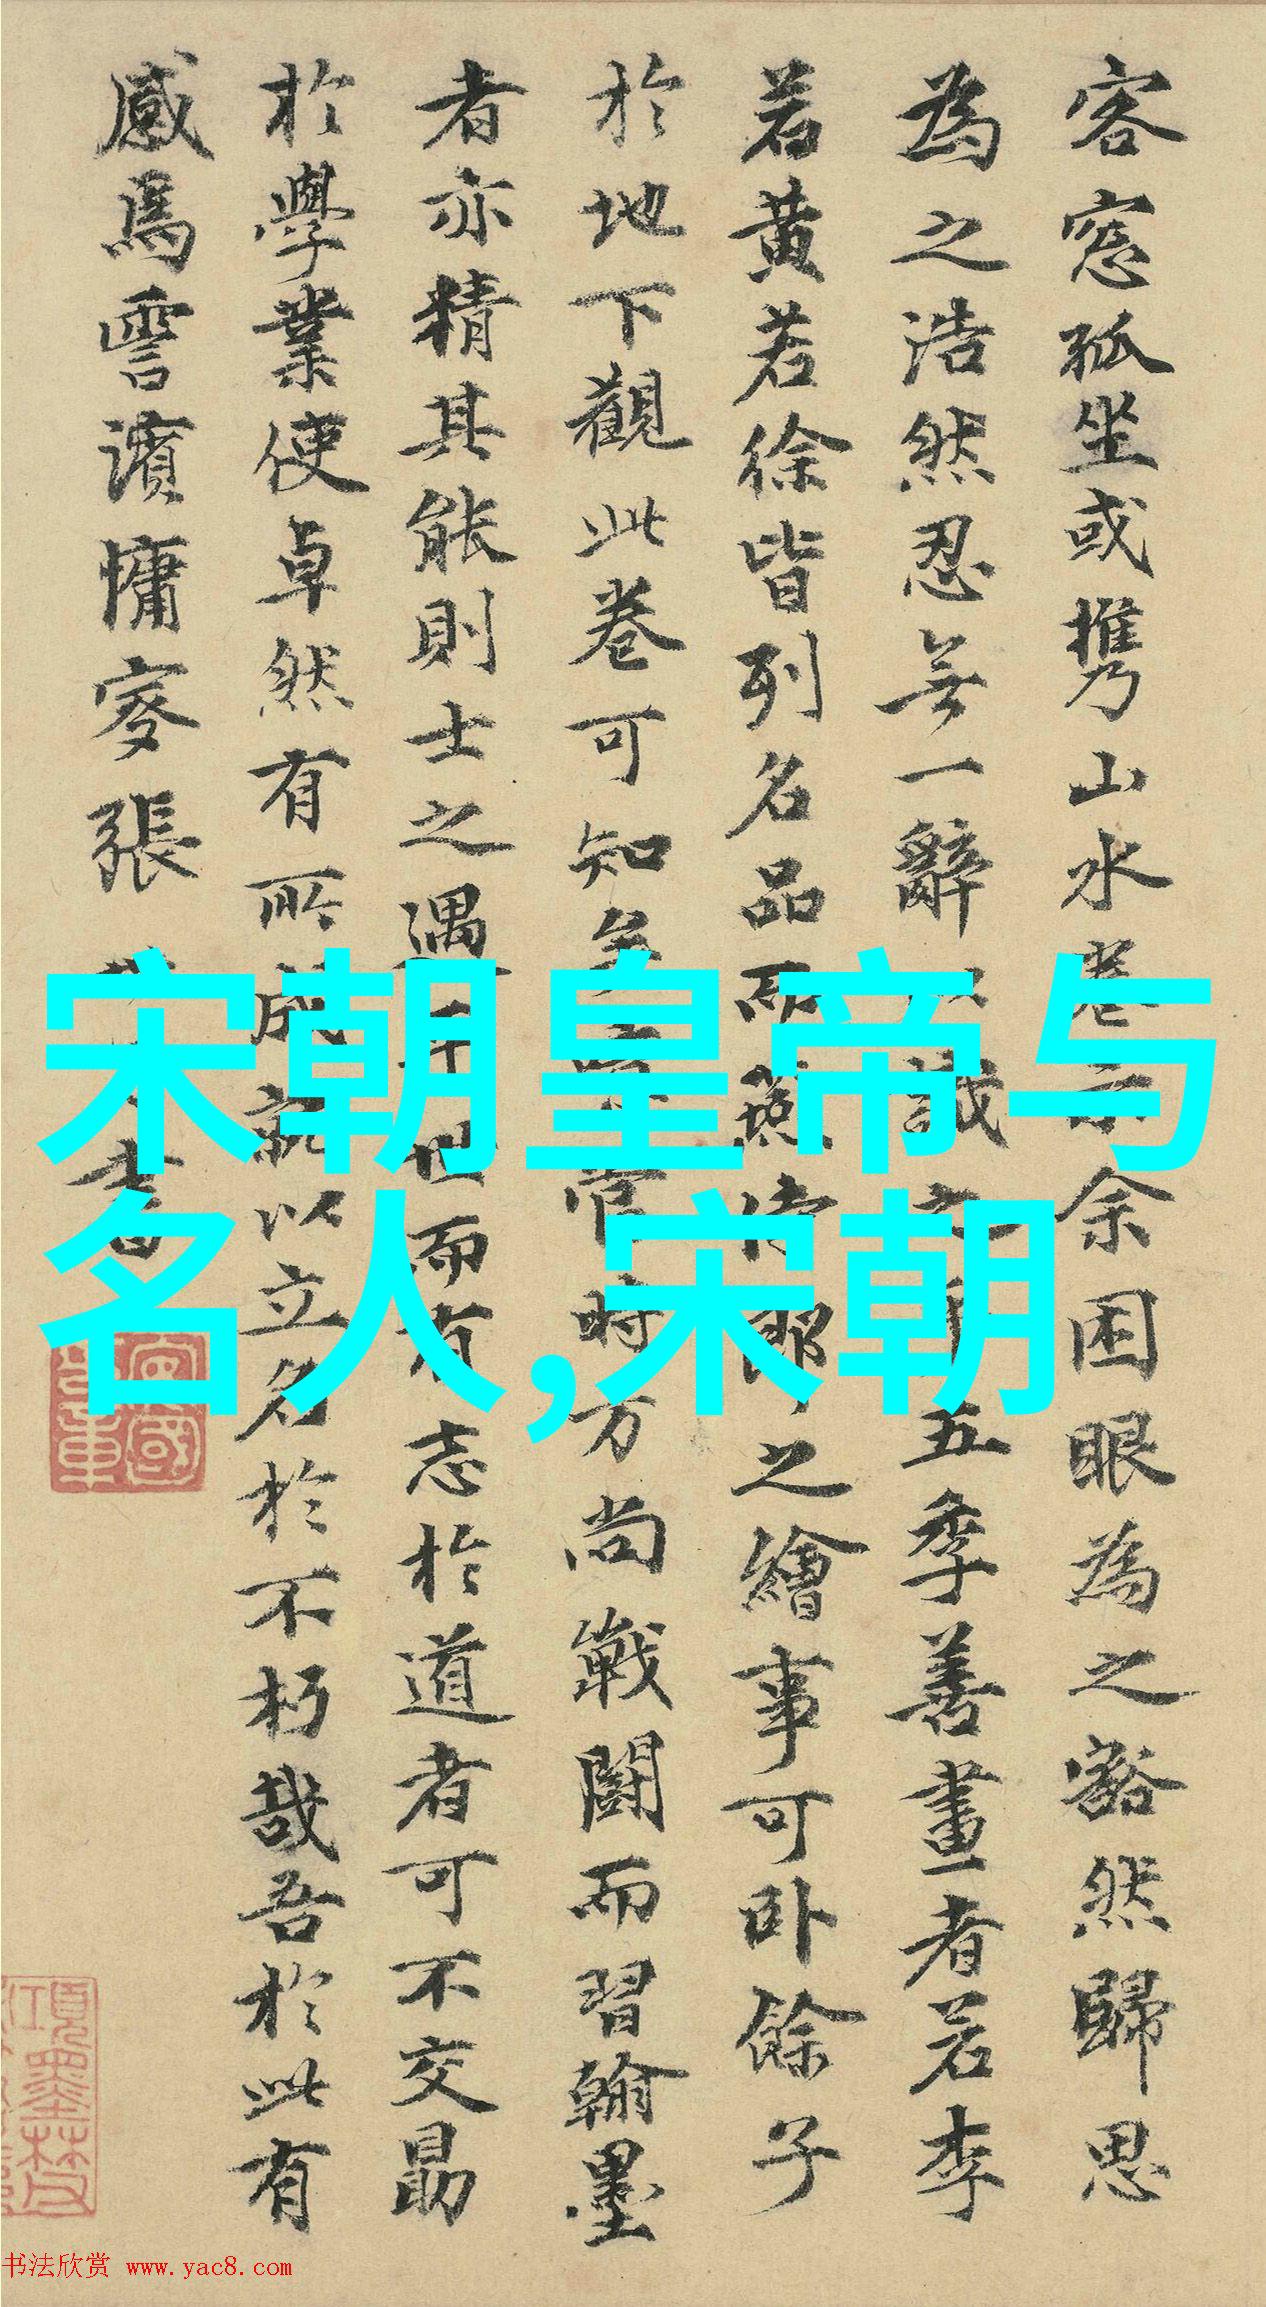 客窓孤坐或携山水卷示余困眼為之豁然歸思
為之浩然忍無一辭 識之 五季善畫者若李
若黄若徐皆列名品而燕侍郎之繪事可卧餘子
於地下觀此卷可知矣 時方尚戰鬭而習翰墨
者亦精其能則士之遇 世而有志於道者可不交勗
於學業使卓然有所成就以立名於不朽哉吾於此有
感焉雲濱慵叟張 書
宋朝皇帝与
名人,宋朝
書法欣赏 www.yac8.com